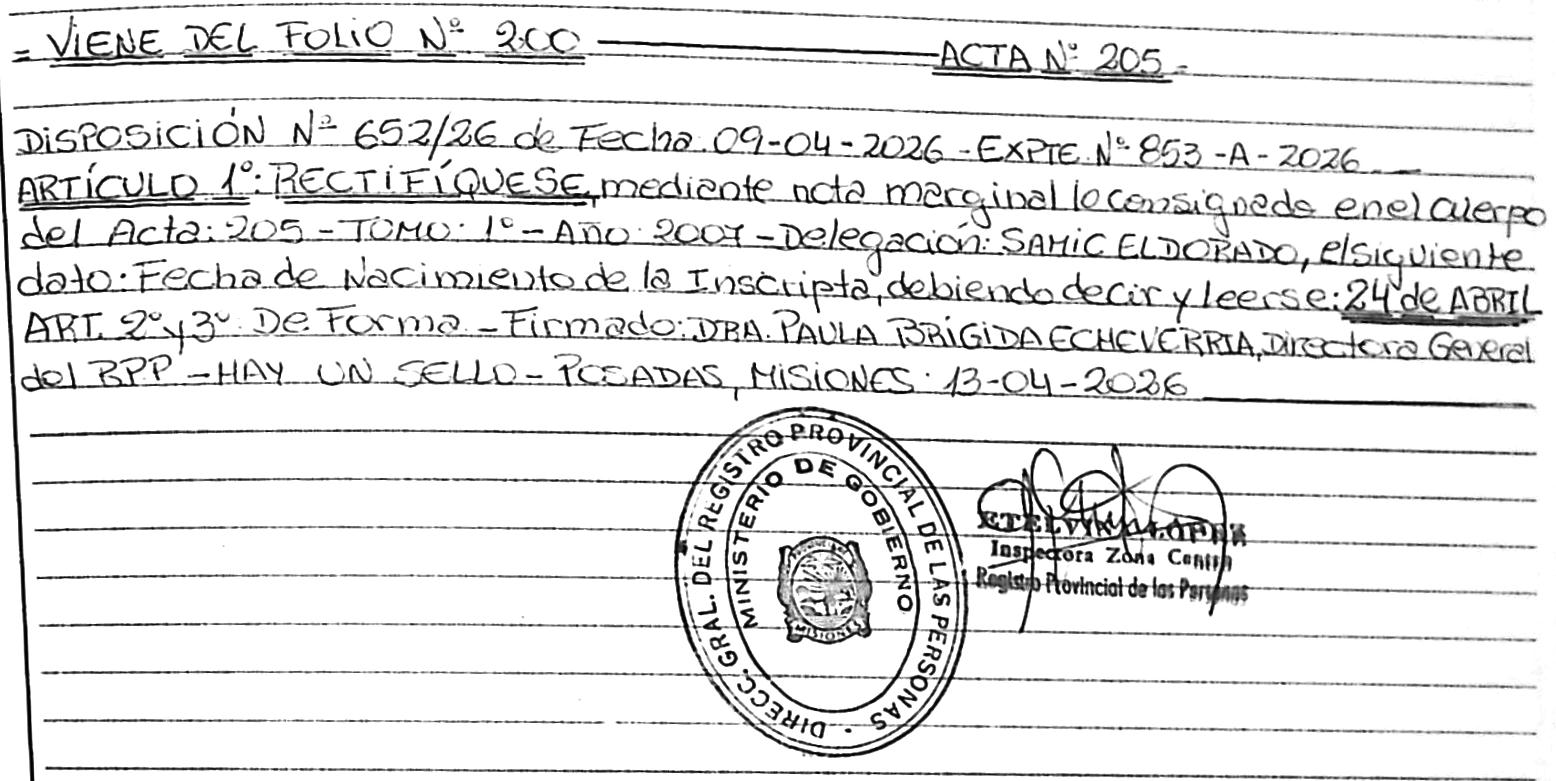 = VIENE DEL FOLIO Nº 200 ACTA Nº 205 -
DISPOSICIÓN Nº 652/26 de Fecha 09-04-2026 - EXPTE Nº 853-A-2026
ARTÍCULO 1º: RECTIFÍQUESE, mediante nota marginal lo consignado en el cuerpo
del Acta: 205 - TOMO: 1º - Año: 2007 - Delegación: SAMIC ELDORADO, el siguiente
dato: Fecha de Nacimiento de la Inscripta, debiendo decir y leerse: 24 de ABRIL
ART. 2º y 3º De Forma - Firmado: DRA. PAULA BRÍGIDA ECHEVERRIA, Directora General
del RPP - HAY UN SELLO - POSADAS, MISIONES: 13-04-2026
DIRECC. GRAL. DEL REGISTRO PROVINCIAL DE LAS PERSONAS
MINISTERIO DE GOBIERNO
MISIONES
Inspectora Zona
Registro Provincial de las Personas